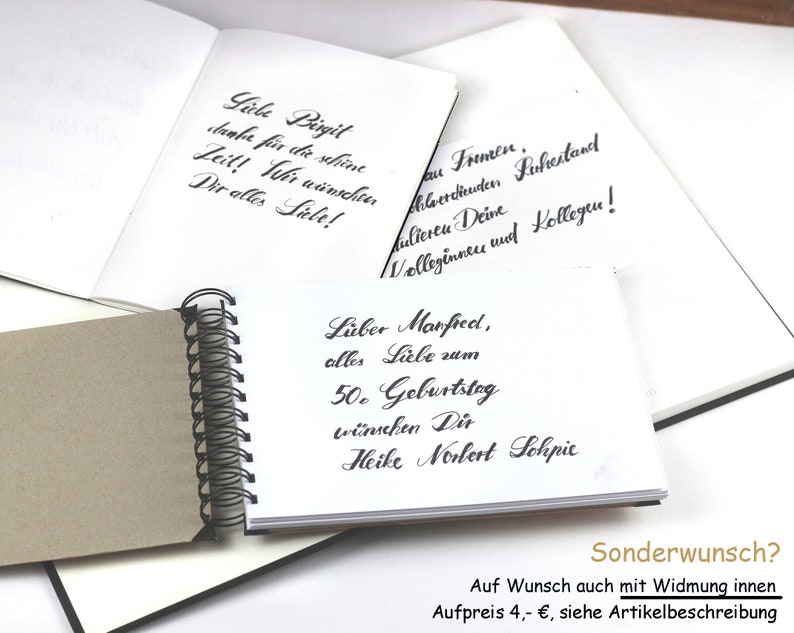 Liebe Birgit
danke für die schöne
Zeit! Wir wünschen
Dir alles Liebe!
au Frenen,
ohlverdienden Ruhestand
tulieren Deine
Kolleginnen und Kollegen!
Lieber Manfred,
alles Liebe zum
50. Geburtstag
wünschen Dir
Heike Norbert Sohpie
Sonderwunsch?
Auf Wunsch auch mit Widmung innen
Aufpreis 4,- €, siehe Artikelbeschreibung